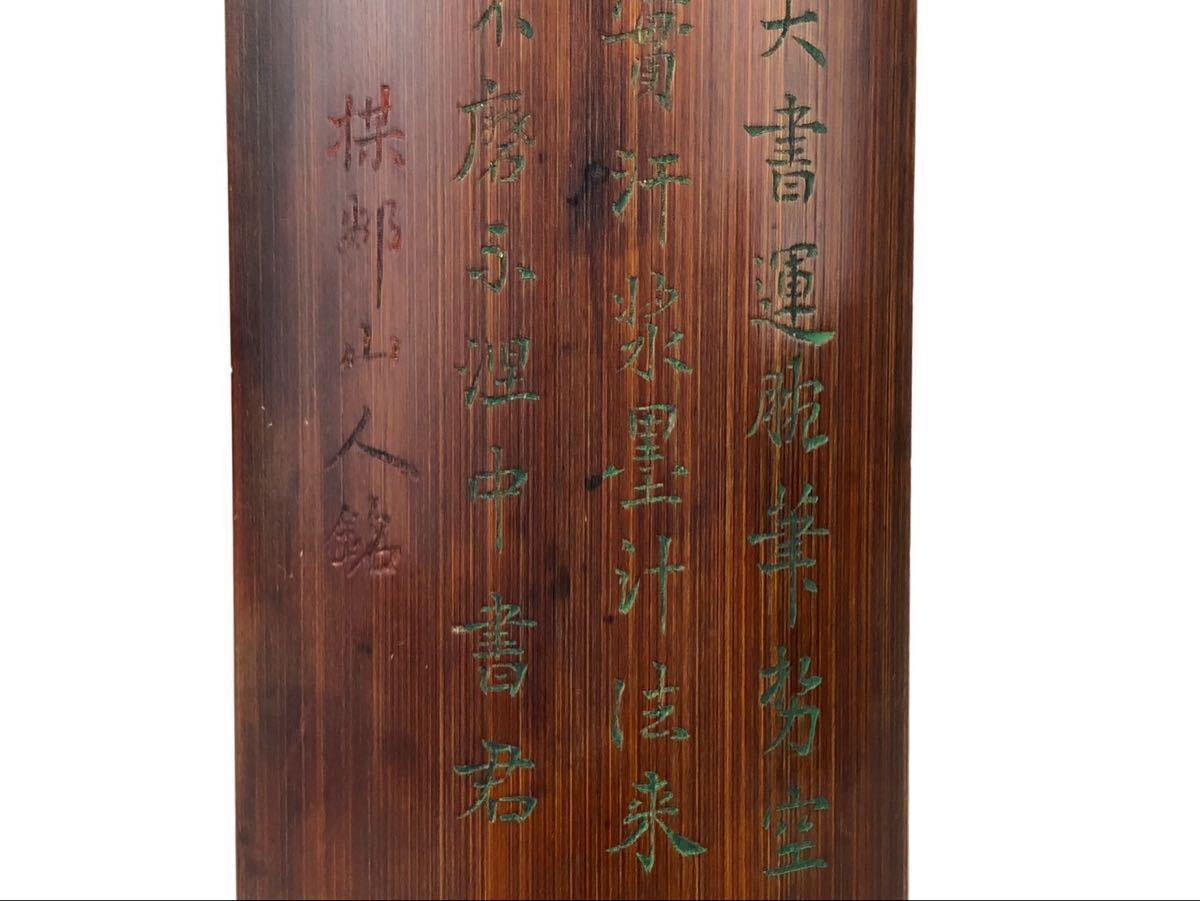 大書運腕筆勢空
實汗漿墨汁法来
不磨不涅中書君
楳邨山人銘